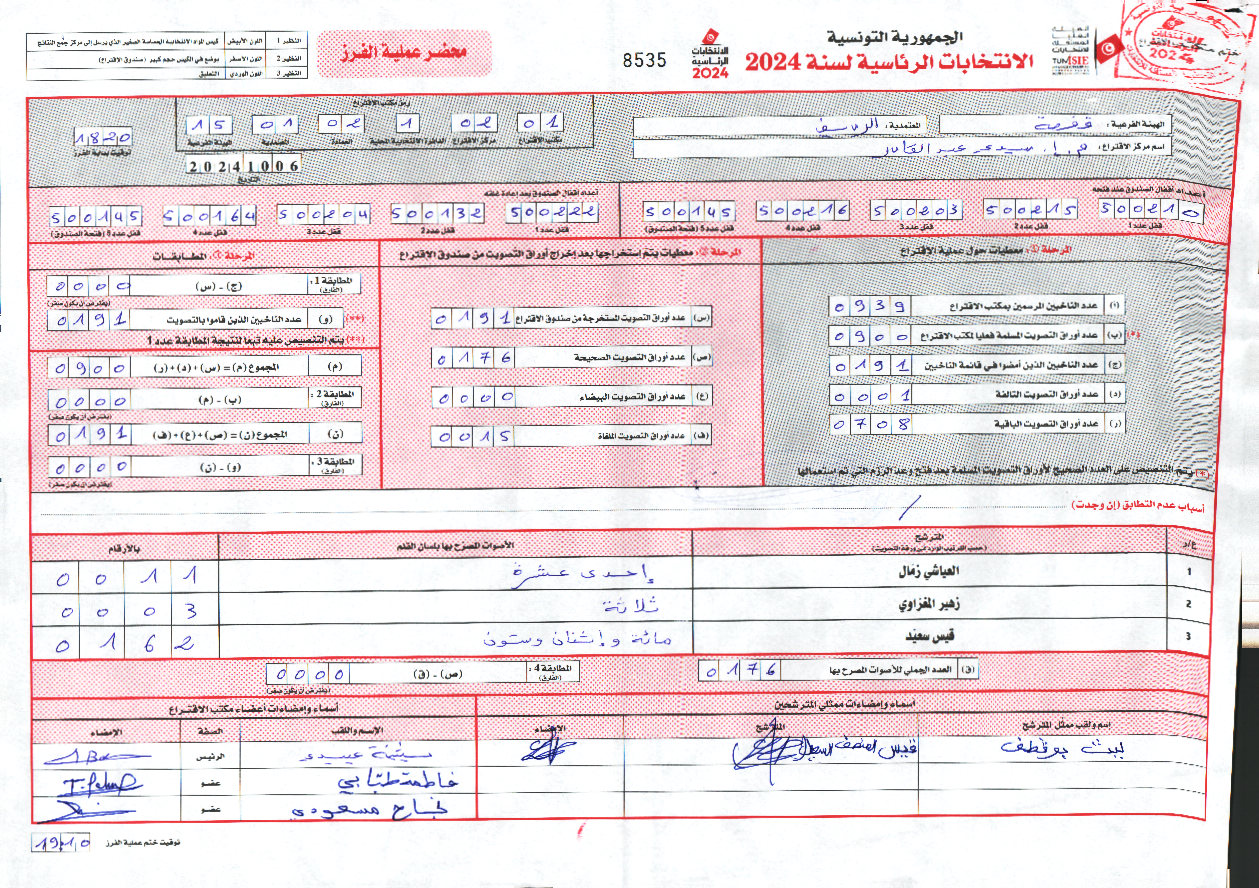 الجمهورية التونسية
الانتخابات الرئاسية لسنة 2024
الانتخابات الرئاسية 2024
8535
محضر عملية الفرز
النظير 1 اللون الأبيض
النظير 2 اللون الأصفر يوضع في الكيس حجم كبير (صندوق الاقتراع)
النظير 3 اللون الوردي التعليق
الهيئة الفرعية : قفصة
المعتمدية : الرديف
اسم مركز الاقتراع : م.إ. سيدي عبد القادر
رمز مكتب الاقتراع
01 02 1 02 01 15
مكتب الاقتراع مركز الاقتراع الدائرة الانتخابية المحلية العمادة المعتمدية الهيئة الفرعية
20241006
التاريخ
1820
توقيت بداية الفرز
أعداد أقفال الصندوق عند فتحه
500210 500215 500203 500216 500145
قفل عدد 1 قفل عدد 2 قفل عدد 3 قفل عدد 4 قفل عدد 5 (فتحة الصندوق)
أعداد أقفال الصندوق بعد إعادة غلقه
500222 500132 500204 500164 500145
قفل عدد 1 قفل عدد 2 قفل عدد 3 قفل عدد 4 قفل عدد 5 (فتحة الصندوق)
المرحلة ①: معطيات حول عملية الاقتراع
(أ) عدد الناخبين المرسمين بمكتب الاقتراع 0939
(*) (ب) عدد أوراق التصويت المسلمة فعليا لمكتب الاقتراع 0900
(ج) عدد الناخبين الذين أمضوا في قائمة الناخبين 0191
(د) عدد أوراق التصويت التالفة 0001
(ر) عدد أوراق التصويت الباقية 0708
(*) يتم التنصيص على العدد الصحيح لأوراق التصويت المسلمة بعد فتح وعد الرزم التي تم استعمالها
المرحلة ②: معطيات يتم استخراجها بعد إخراج أوراق التصويت من صندوق الاقتراع
(س) عدد أوراق التصويت المستخرجة من صندوق الاقتراع 0191
(ص) عدد أوراق التصويت الصحيحة 0176
(ع) عدد أوراق التصويت البيضاء 0000
(ف) عدد أوراق التصويت الملغاة 0015
المرحلة ③: المطابقات
المطابقة 1: (الفارق) (ج) - (س) 0000
(يفترض أن يكون صفر)
(**) (و) عدد الناخبين الذين قاموا بالتصويت 0191
(**) يتم التنصيص عليه تبعا لنتيجة المطابقة عدد 1
(م) المجموع (م) = (س) + (د) + (ر) 0900
المطابقة 2: (الفارق) (ب) - (م) 0000
(يفترض أن يكون صفر)
(ن) المجموع (ن) = (ص) + (ع) + (ف) 0191
المطابقة 3: (الفارق) (و) - (ن) 0000
(يفترض أن يكون صفر)
أسباب عدم التطابق (إن وجدت) /
ع/ر المترشح الأصوات المصرح بها بلسان القلم بالأرقام
(حسب الترتيب الوارد في ورقة التصويت)
1 العياشي زمال إحدى عشرة 0011
2 زهير المغزاوي ثلاثة 0003
3 قيس سعيّد مائة وإثنان وستون 0162
(ق) العدد الجملي للأصوات المصرح بها 0176
المطابقة 4: (الفارق) (ص) - (ق) 0000
(يفترض أن يكون صفر)
أسماء وإمضاءات ممثلي المترشحين
إسم ولقب ممثل المترشح المترشح الإمضاء
قيس
أسماء وإمضاءات أعضاء مكتب الاقتراع
الإسم واللقب الصفة الإمضاء
عبيدي الرئيس
فاطمة عضو
نجاح مسعودي عضو
توقيت ختم عملية الفرز 1910